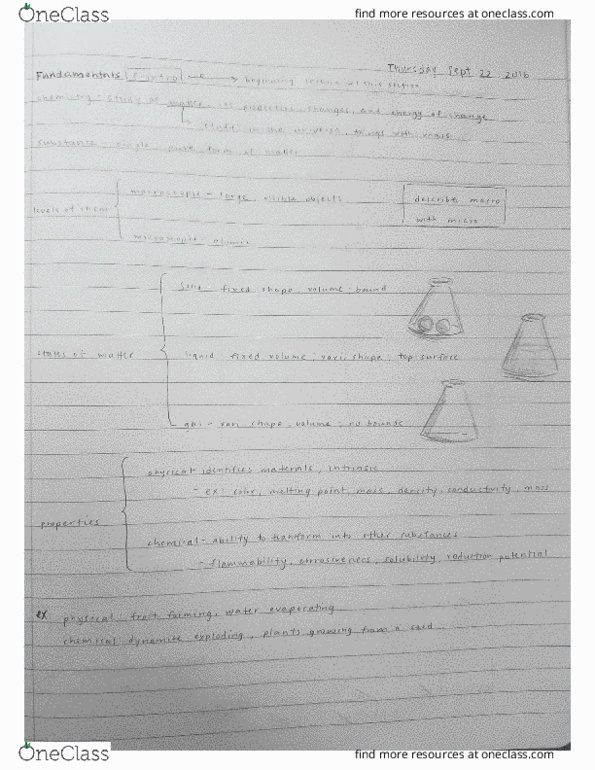 OneClass
find more resources at oneclass.com
Thursday Sept 22 2016
Fundamentals
chemistry - study of matter, its properties, changes, and energy of change
substance - single, pure form of matter
macroscopic - large, visible objects
describes macro
levels of chem
with micro
microscopic - atomic
fixed shape, volume; bound
states of matter
liquid fixed volume; vari. shape; top surface
gas - vari. shape, volume; no bounds
physical - identifies materials, intrinsic
- ex: color, melting point, mass, density, conductivity, mass
properties
chemical - ability to transform into other substances
- flammability, corrosiveness, solubility, reduction potential
ex physical: frost forming, water evaporating
chemical dynamite exploding, plants growing from a seed
OneClass
find more resources at oneclass.com